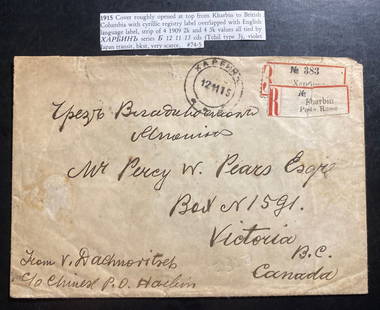 1915 Cover roughly opened at top from Kharbin to British
Columbia with cyrillic registry label overlapped with English
language label, strip of 4 1909 2k and 4 3k values all tied by
ХАРБИНЪ series Б 12 11 15 cds (Tchil type), violet
Japan transit, bkst, very scarce. #74-5
ХАРБИНЪ
12 11 15
R
№ 383
Харбинъ
R
№
Kharbin
Poste Russe
Чрезъ Владивостокъ
Японию
Mr Percy W. Pears Esqre
Box N 1591.
Victoria
B.C.
Canada
From V. Dachnovitsch
C/o Chinese P.O. Harbin